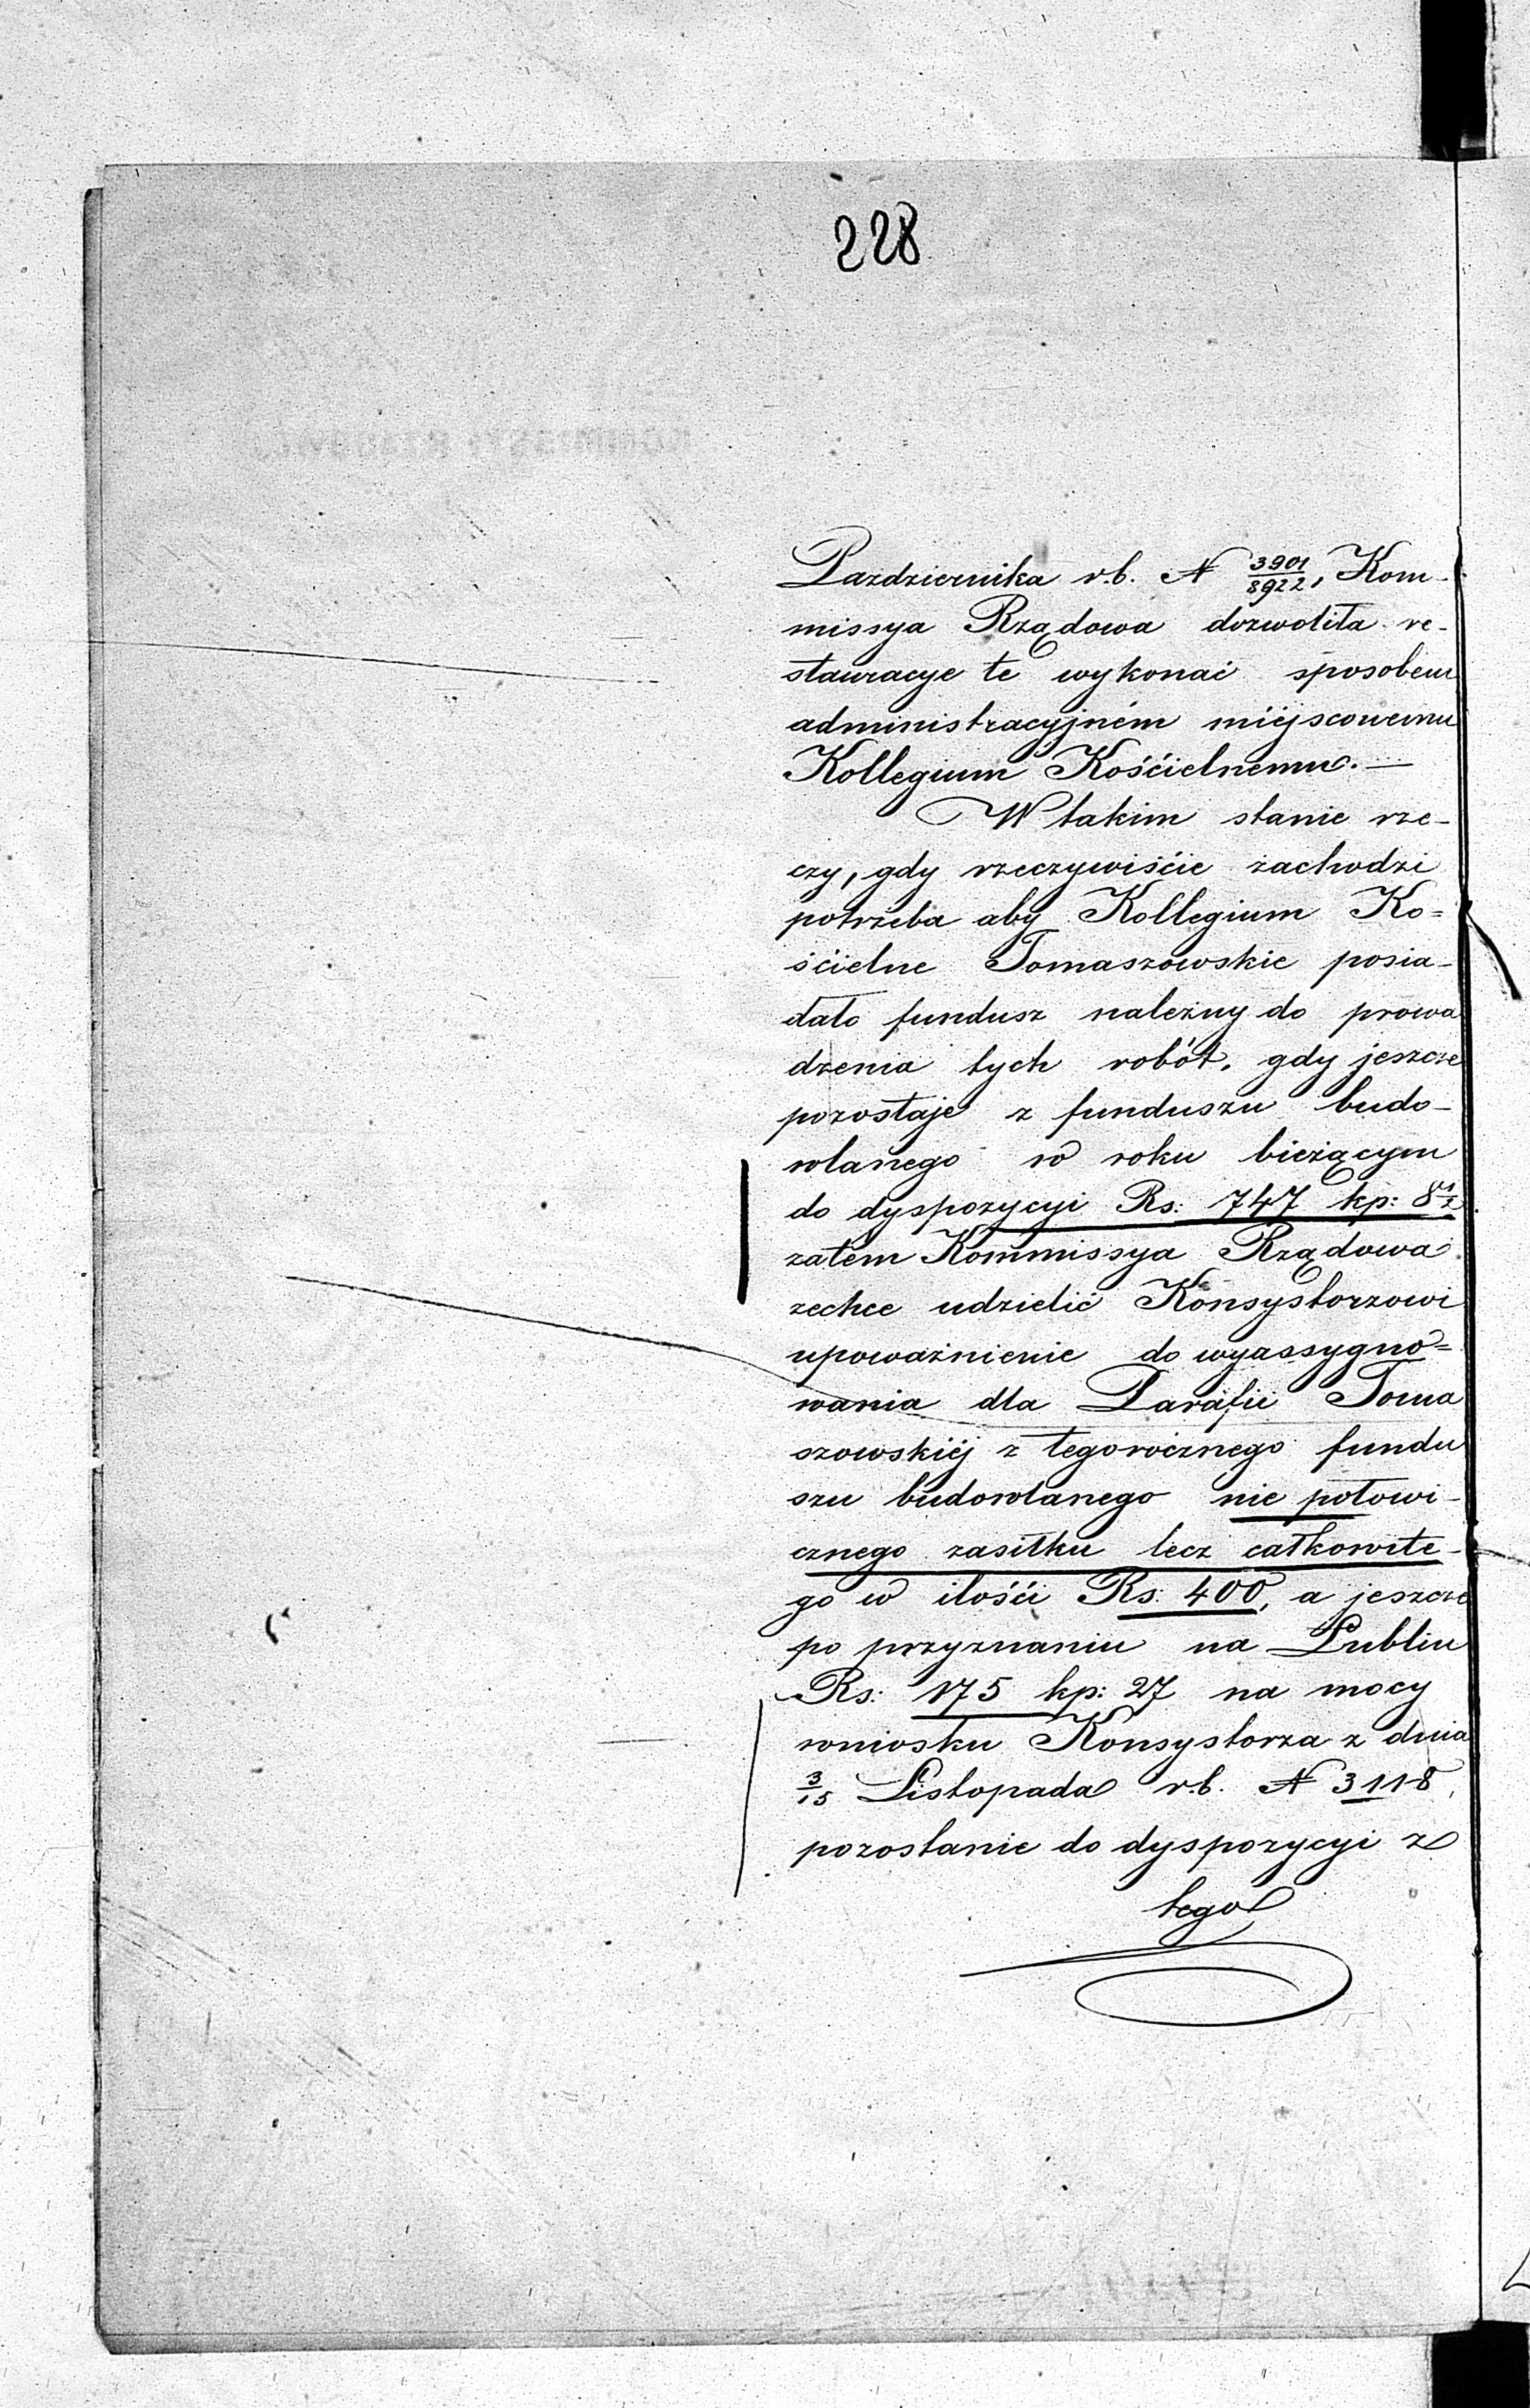 228
Pazdziernika r.b. N 3901/8922, Kom-
missya Rządowa dozwoliła re-
stauracye te wykonać sposobem
administracyjném miéjscowemu
Kollegium Kościelnemu. —
W takim stanie rze-
czy, gdy rzeczywiście zachodzi
potrzeba aby Kollegium Ko=
ścielne Tomaszowskie posia-
dało fundusz należny do prowa
dzenia tych robót, gdy jeszcze
pozostaje z funduszu budo-
wlanego w roku bieżącym
do dyspozycyi Rs: 747 kp: 8½
zatem Kommissya Rządowa
zechce udzielić Konsystorzowi
upoważnienie do wyassygno=
wania dla Parafii Toma
szowskiéj z tegorocznego fundu
szu budowlanego nie połowi-
cznego zasiłku lecz całkowite-
go w ilości Rs: 400, a jeszcze
po przyznaniu na Lublin
Rs: 175 kp: 27 na mocy
wniosku Konsystorza z dnia
3/15 Listopada r.b. N 3118,
pozostanie do dyspozycyi z
tego